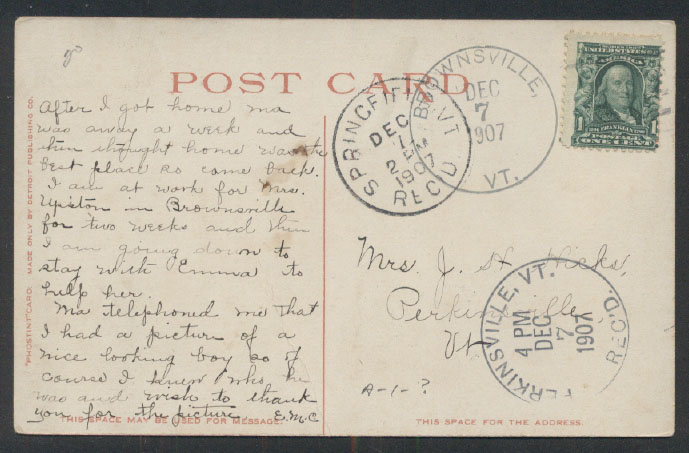 POST CARD
After I got home ma
was away a week and
then thought home was the
best place so come back.
I am at work for Mrs.
Upston in Brownsville
for two weeks and then
I am going down to
stay with Emma to
help her.
Ma telephoned me that
I had a picture of a
nice looking boy so of
course I knew who he
was and wish to thank
you for the picture. E.M.C
THIS SPACE MAY BE USED FOR MESSAGE.
"PHOSTINT" CARD. MADE ONLY BY DETROIT PUBLISHING CO.
SPRINGFIELD VT
DEC
2 PM
1907
REC'D
BROWNSVILLE,
DEC
7
1907
VT.
UNITED STATES OF
AMERICA
FRANKLIN
1 POSTAGE 1
ONE CENT
Mrs. J. H. Hicks,
Perkinsville,
Vt
PERKINSVILLE, VT.
4 PM
DEC
7
1907
REC'D.
A-1-?
THIS SPACE FOR THE ADDRESS.